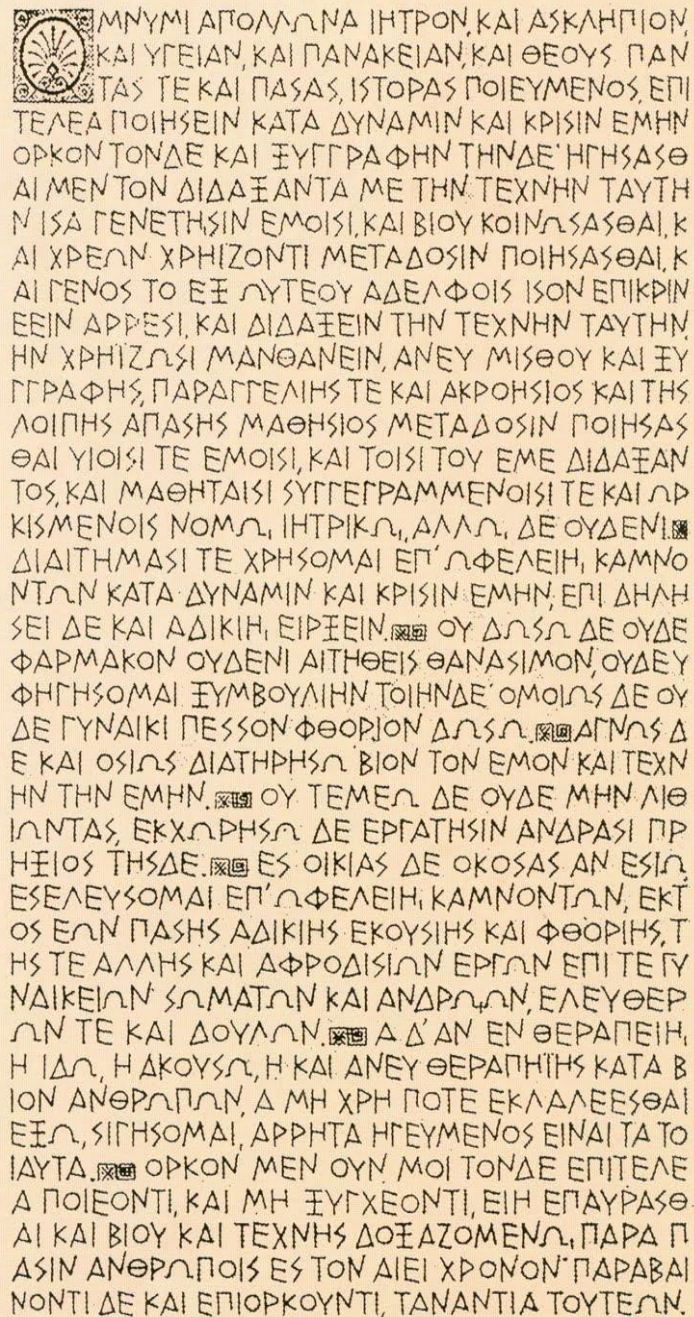 ΟΜΝΥΜΙ ΑΠΟΛΛΩΝΑ ΙΗΤΡΟΝ, ΚΑΙ ΑΣΚΛΗΠΙΟΝ,
ΚΑΙ ΥΓΕΙΑΝ, ΚΑΙ ΠΑΝΑΚΕΙΑΝ, ΚΑΙ ΘΕΟΥΣ ΠΑΝ
ΤΑΣ ΤΕ ΚΑΙ ΠΑΣΑΣ, ΙΣΤΟΡΑΣ ΠΟΙΕΥΜΕΝΟΣ, ΕΠΙ
ΤΕΛΕΑ ΠΟΙΗΣΕΙΝ ΚΑΤΑ ΔΥΝΑΜΙΝ ΚΑΙ ΚΡΙΣΙΝ ΕΜΗΝ
ΟΡΚΟΝ ΤΟΝΔΕ ΚΑΙ ΞΥΓΓΡΑΦΗΝ ΤΗΝΔΕ· ΗΓΗΣΑΣΘ
ΑΙ ΜΕΝ ΤΟΝ ΔΙΔΑΞΑΝΤΑ ΜΕ ΤΗΝ ΤΕΧΝΗΝ ΤΑΥΤΗ
Ν ΙΣΑ ΓΕΝΕΤΗΙΣΙΝ ΕΜΟΙΣΙ, ΚΑΙ ΒΙΟΥ ΚΟΙΝΩΣΑΣΘΑΙ, Κ
ΑΙ ΧΡΕΩΝ ΧΡΗΙΖΟΝΤΙ ΜΕΤΑΔΟΣΙΝ ΠΟΙΗΣΑΣΘΑΙ, Κ
ΑΙ ΓΕΝΟΣ ΤΟ ΕΞ ΩΥΤΕΟΥ ΑΔΕΛΦΟΙΣ ΙΣΟΝ ΕΠΙΚΡΙΝ
ΕΕΙΝ ΑΡΡΕΣΙ, ΚΑΙ ΔΙΔΑΞΕΙΝ ΤΗΝ ΤΕΧΝΗΝ ΤΑΥΤΗΝ,
ΗΝ ΧΡΗΪΖΩΣΙ ΜΑΝΘΑΝΕΙΝ, ΑΝΕΥ ΜΙΣΘΟΥ ΚΑΙ ΞΥ
ΓΓΡΑΦΗΣ, ΠΑΡΑΓΓΕΛΙΗΣ ΤΕ ΚΑΙ ΑΚΡΟΗΣΙΟΣ ΚΑΙ ΤΗΣ
ΛΟΙΠΗΣ ΑΠΑΣΗΣ ΜΑΘΗΣΙΟΣ ΜΕΤΑΔΟΣΙΝ ΠΟΙΗΣΑΣ
ΘΑΙ ΥΙΟΙΣΙ ΤΕ ΕΜΟΙΣΙ, ΚΑΙ ΤΟΙΣΙ ΤΟΥ ΕΜΕ ΔΙΔΑΞΑΝ
ΤΟΣ, ΚΑΙ ΜΑΘΗΤΑΙΣΙ ΣΥΓΓΕΓΡΑΜΜΕΝΟΙΣΙ ΤΕ ΚΑΙ ΩΡ
ΚΙΣΜΕΝΟΙΣ ΝΟΜΩΙ ΙΗΤΡΙΚΩΙ, ΑΛΛΩΙ ΔΕ ΟΥΔΕΝΙ.
ΔΙΑΙΤΗΜΑΣΙ ΤΕ ΧΡΗΣΟΜΑΙ ΕΠ' ΩΦΕΛΕΙΗΙ ΚΑΜΝΟ
ΝΤΩΝ ΚΑΤΑ ΔΥΝΑΜΙΝ ΚΑΙ ΚΡΙΣΙΝ ΕΜΗΝ, ΕΠΙ ΔΗΛΗ
ΣΕΙ ΔΕ ΚΑΙ ΑΔΙΚΙΗΙ ΕΙΡΞΕΙΝ. ΟΥ ΔΩΣΩ ΔΕ ΟΥΔΕ
ΦΑΡΜΑΚΟΝ ΟΥΔΕΝΙ ΑΙΤΗΘΕΙΣ ΘΑΝΑΣΙΜΟΝ, ΟΥΔΕ Υ
ΦΗΓΗΣΟΜΑΙ ΞΥΜΒΟΥΛΙΗΝ ΤΟΙΗΝΔΕ· ΟΜΟΙΩΣ ΔΕ ΟΥ
ΔΕ ΓΥΝΑΙΚΙ ΠΕΣΣΟΝ ΦΘΟΡΙΟΝ ΔΩΣΩ. ΑΓΝΩΣ Δ
Ε ΚΑΙ ΟΣΙΩΣ ΔΙΑΤΗΡΗΣΩ ΒΙΟΝ ΤΟΝ ΕΜΟΝ ΚΑΙ ΤΕΧΝ
ΗΝ ΤΗΝ ΕΜΗΝ. ΟΥ ΤΕΜΕΩ ΔΕ ΟΥΔΕ ΜΗΝ ΛΙΘ
ΙΩΝΤΑΣ, ΕΚΧΩΡΗΣΩ ΔΕ ΕΡΓΑΤΗΣΙΝ ΑΝΔΡΑΣΙ ΠΡ
ΗΞΙΟΣ ΤΗΣΔΕ. ΕΣ ΟΙΚΙΑΣ ΔΕ ΟΚΟΣΑΣ ΑΝ ΕΣΙΩ,
ΕΣΕΛΕΥΣΟΜΑΙ ΕΠ' ΩΦΕΛΕΙΗΙ ΚΑΜΝΟΝΤΩΝ, ΕΚΤ
ΟΣ ΕΩΝ ΠΑΣΗΣ ΑΔΙΚΙΗΣ ΕΚΟΥΣΙΗΣ ΚΑΙ ΦΘΟΡΙΗΣ, Τ
ΗΣ ΤΕ ΑΛΛΗΣ ΚΑΙ ΑΦΡΟΔΙΣΙΩΝ ΕΡΓΩΝ ΕΠΙ ΤΕ ΓΥ
ΝΑΙΚΕΙΩΝ ΣΩΜΑΤΩΝ ΚΑΙ ΑΝΔΡΩΙΩΝ, ΕΛΕΥΘΕΡ
ΩΝ ΤΕ ΚΑΙ ΔΟΥΛΩΝ. Α Δ' ΑΝ ΕΝ ΘΕΡΑΠΕΙΗΙ
Η ΙΔΩ, Η ΑΚΟΥΣΩ, Η ΚΑΙ ΑΝΕΥ ΘΕΡΑΠΗΪΗΣ ΚΑΤΑ Β
ΙΟΝ ΑΝΘΡΩΠΩΝ, Α ΜΗ ΧΡΗ ΠΟΤΕ ΕΚΛΑΛΕΕΣΘΑΙ
ΕΞΩ, ΣΙΓΗΣΟΜΑΙ, ΑΡΡΗΤΑ ΗΓΕΥΜΕΝΟΣ ΕΙΝΑΙ ΤΑ ΤΟ
ΙΑΥΤΑ. ΟΡΚΟΝ ΜΕΝ ΟΥΝ ΜΟΙ ΤΟΝΔΕ ΕΠΙΤΕΛΕ
Α ΠΟΙΕΟΝΤΙ, ΚΑΙ ΜΗ ΞΥΓΧΕΟΝΤΙ, ΕΙΗ ΕΠΑΥΡΑΣΘ
ΑΙ ΚΑΙ ΒΙΟΥ ΚΑΙ ΤΕΧΝΗΣ ΔΟΞΑΖΟΜΕΝΩΙ ΠΑΡΑ Π
ΑΣΙΝ ΑΝΘΡΩΠΟΙΣ ΕΣ ΤΟΝ ΑΙΕΙ ΧΡΟΝΟΝ· ΠΑΡΑΒΑΙ
ΝΟΝΤΙ ΔΕ ΚΑΙ ΕΠΙΟΡΚΟΥΝΤΙ, ΤΑΝΑΝΤΙΑ ΤΟΥΤΕΩΝ.